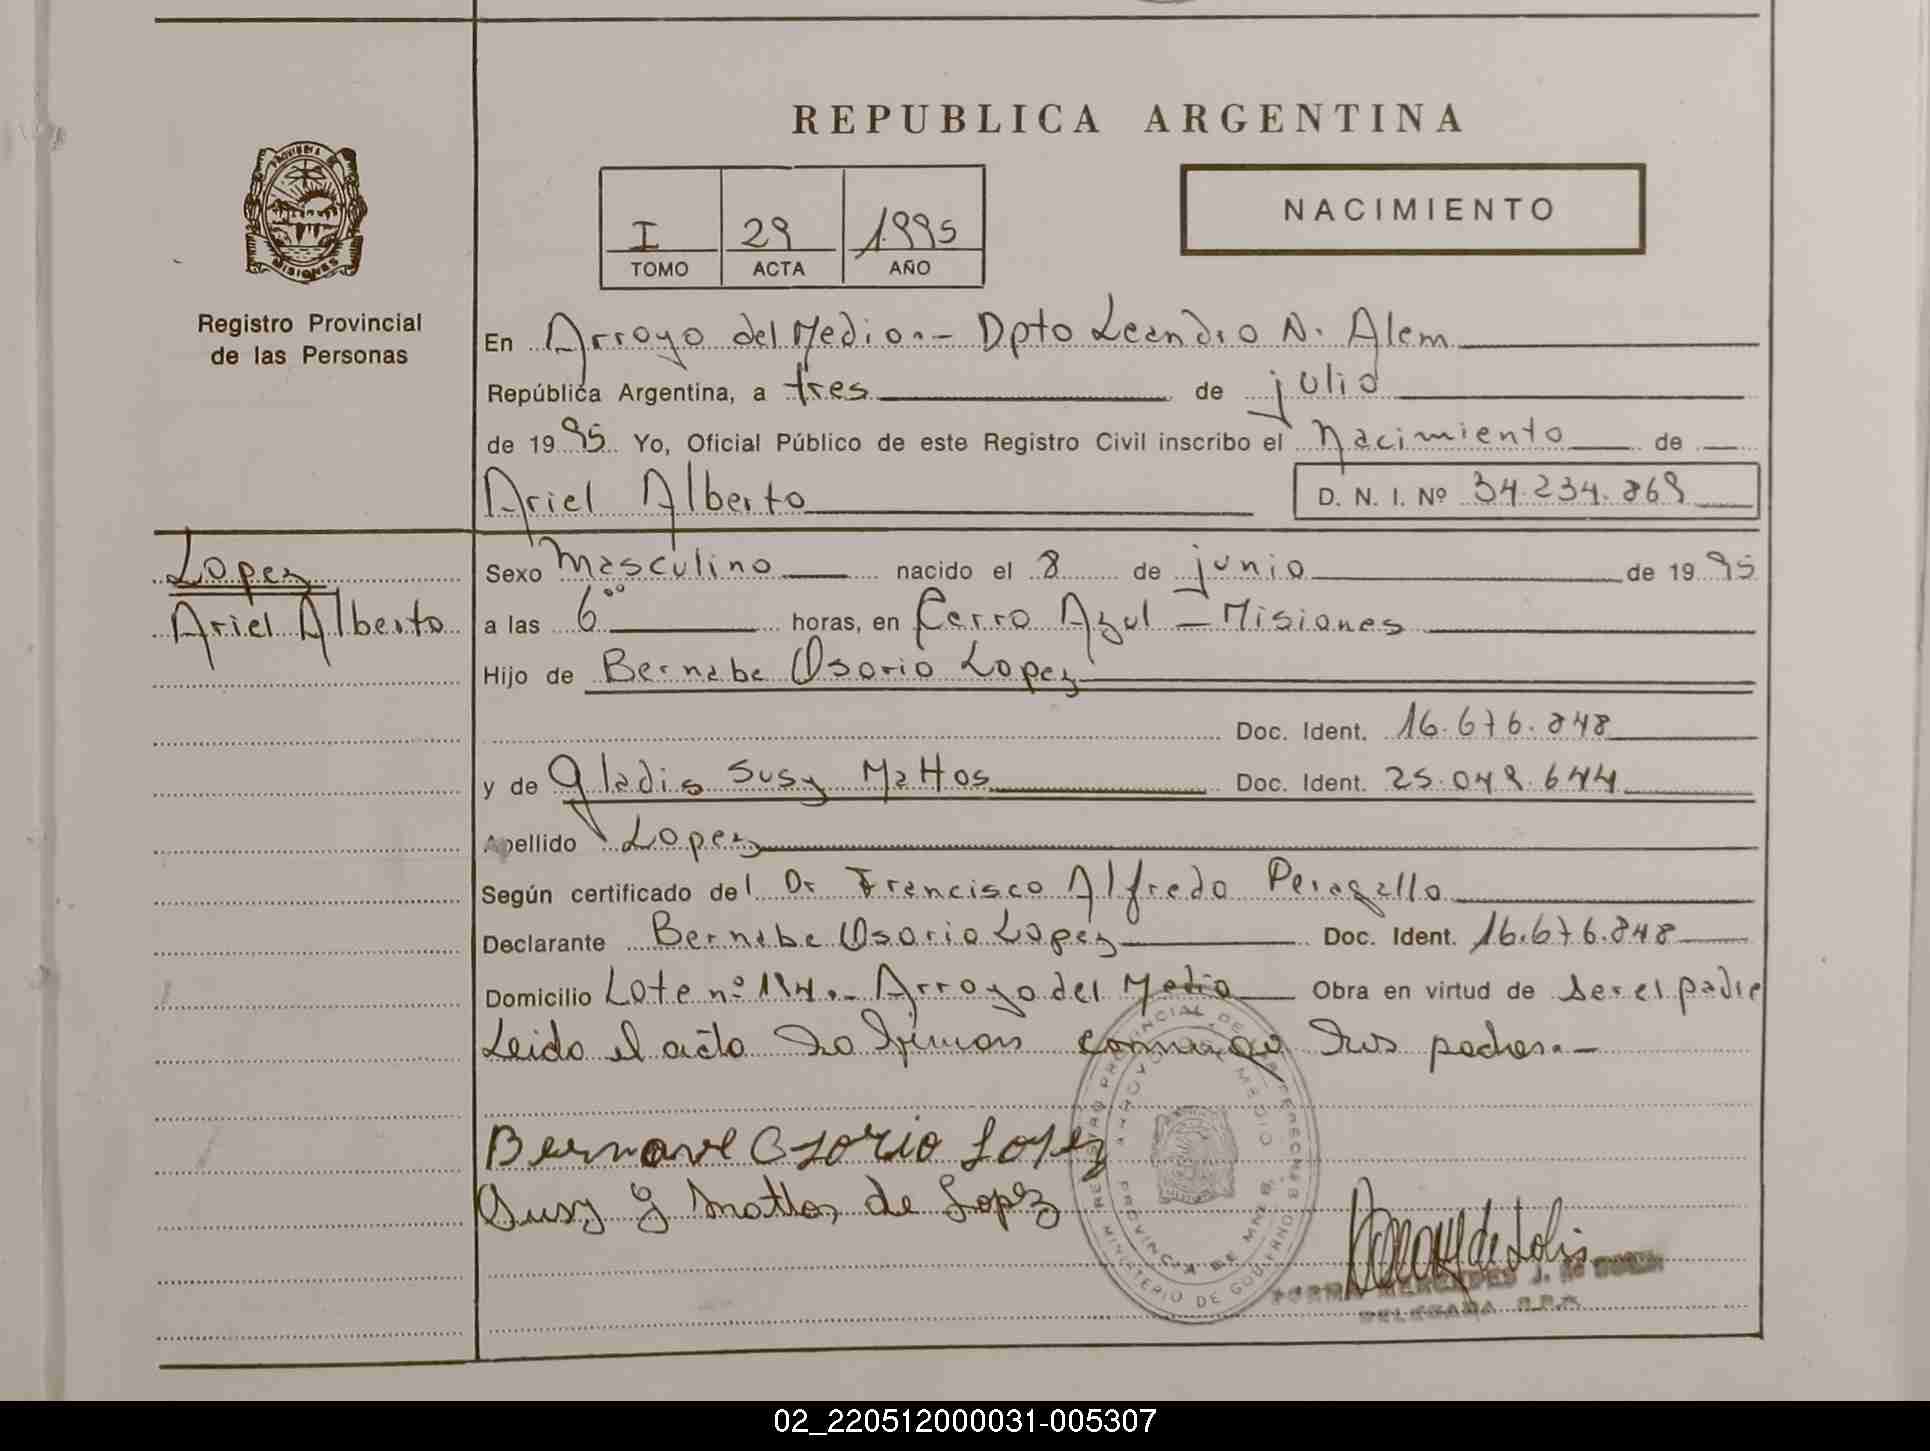 REPUBLICA ARGENTINA
PROVINCIA DE
MISIONES
Registro Provincial
de las Personas
I 29 1995
TOMO ACTA AÑO
NACIMIENTO
En Arroyo del Medio.- Dpto Leandro N. Alem
República Argentina, a tres de julio
de 1995 Yo, Oficial Público de este Registro Civil inscribo el Nacimiento de
Ariel Alberto D. N. I. Nº 34.234.869
Lopez
Ariel Alberto
Sexo Masculino nacido el 8 de junio de 1995
a las 6°° horas, en Cerro Azul - Misiones
Hijo de Bernabe Osorio Lopez
Doc. Ident. 16.676.848
y de Gladis Susy Mattos Doc. Ident. 25.049.644
Apellido Lopez
Según certificado del Dr Francisco Alfredo Peragallo
Declarante Bernabe Osorio Lopez Doc. Ident. 16.676.848
Domicilio Lote nº 114.- Arroyo del Medio Obra en virtud de ser el padre
Leido el acta la firman conmigo sus padres.-
Bernave Osorio Lopez
Susy G Mattos de Lopez
REGISTRO PROVINCIAL DE LAS PERSONAS
MINISTERIO DE GOBIERNO
ARROYO DEL MEDIO
PROVINCIA DE MNES.
de Solis
MERCEDES J. de
DELEGADA R.P.P.
02_220512000031-005307